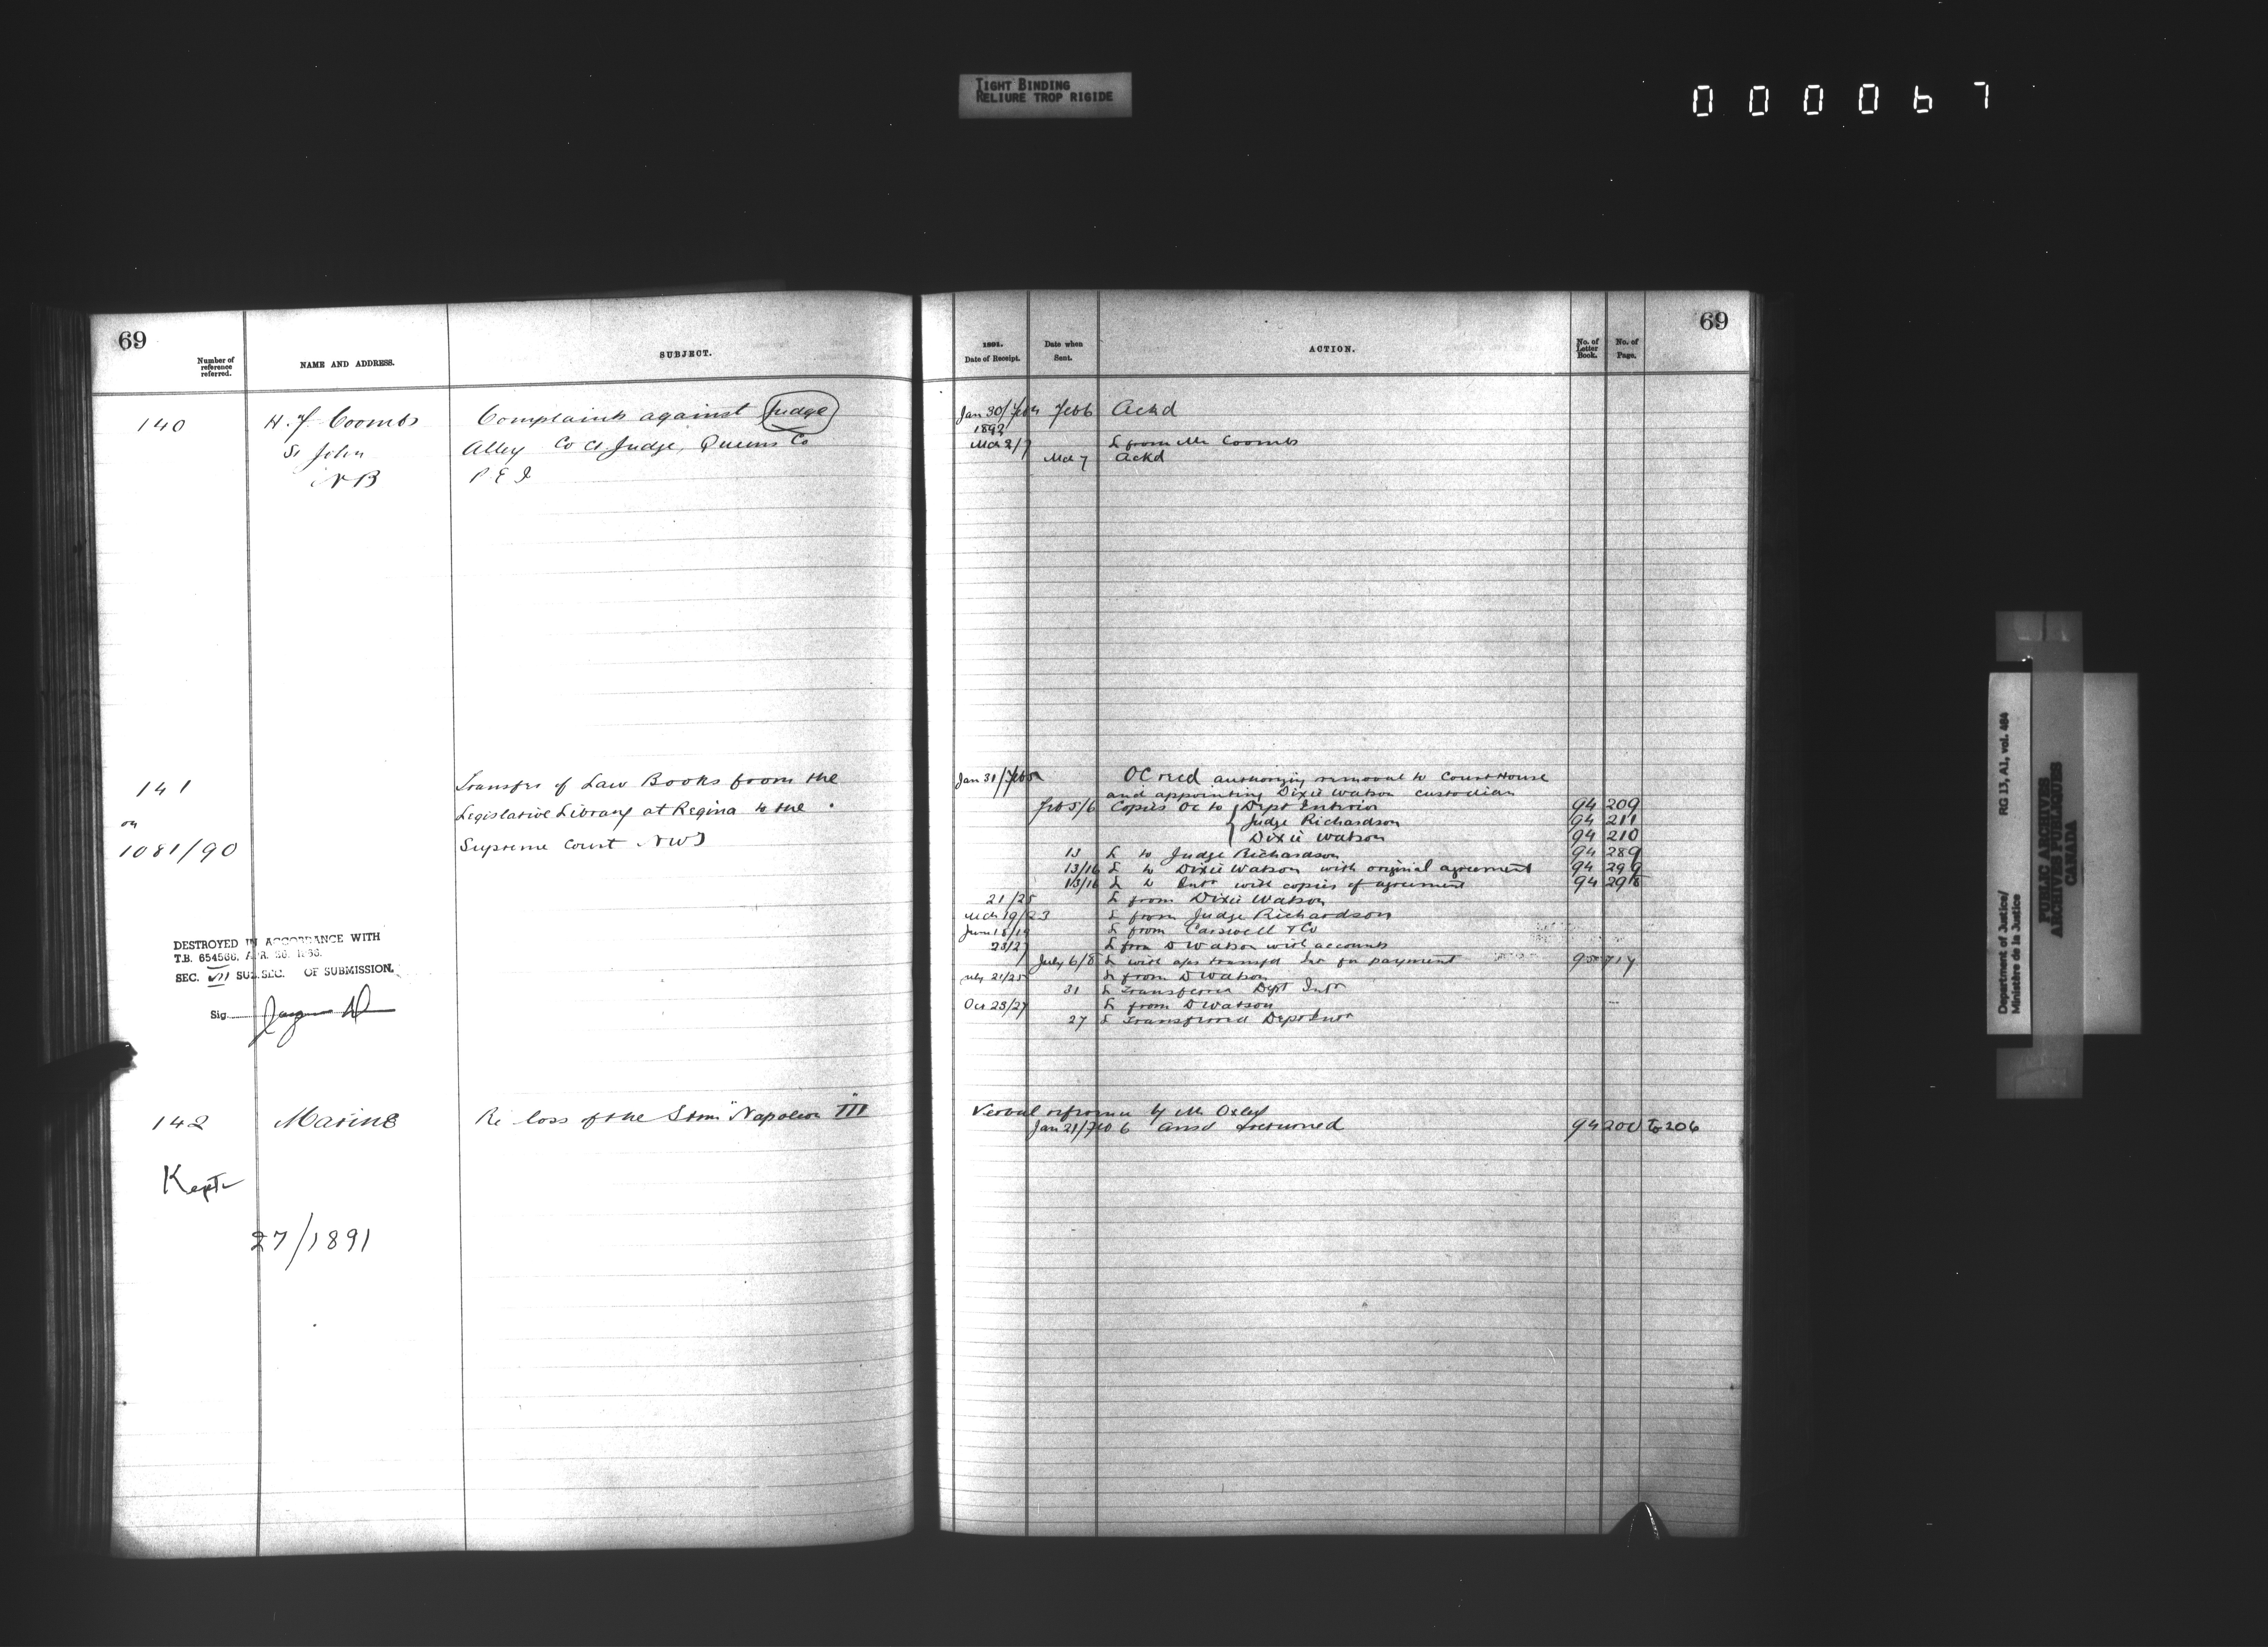 TIGHT BINDING
RELIURE TROP RIGIDE
000067
69
Number of reference referred.
NAME AND ADDRESS.
SUBJECT.
140
H. F Coombs
St John
NB
Complaints against Judge
Alley Co Ct Judge, Queens Co
P E I
141
on
1081/90
Transfer of Law Books from the
Legislative Library at Regina to the
Supreme Court NWT
DESTROYED IN ACCORDANCE WITH
T.B. 654566, APR. 26. 1966.
SEC. VII SUB.SEC. OF SUBMISSION.
Sig.
142
Marine
Re loss of the Stmr "Napoleon III"
Kept
27/1891
69
1891.
Date of Receipt.
Date when Sent.
ACTION.
No. of Letter Book.
No. of Page.
Jan 30/Feb 4 Feb 6 Ackd
1892
Mch 2/7 L from Mr Coombs
Mch 7 Ackd
Jan 31/Feb OC recd authorizing removal to Court House
and appointing Dixie Watson custodian
Feb 5/6 Copies OC to Dept Interior 94 209
Judge Richardson 94 211
Dixie Watson 94 210
13 L to Judge Richardson 94 289
13/16 L to Dixie Watson with original agreement 94 299
13/16 L to Intr with copies of agreement 94 298
21/25 L from Dixie Watson
Mch 19/23 L from Judge Richardson
June 18/19 L from Carswell & Co
23/27 L from D Watson with accounts
July 6/8 L with a/cs transfd Intr for payment 95 717
July 21/25 L from D Watson
31 L Transferred Dept Intr
Oct 23/27 L from D Watson
27 L Transferred Dept Intr
Verbal reference by Mr Oxley
Jan 21/Feb 6 Ansd & returned 94 200 to 206
Department of Justice/ RG 13, A1, vol. 464
Ministère de la Justice
PUBLIC ARCHIVES
ARCHIVES PUBLIQUES
CANADA